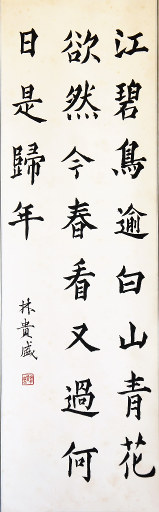 江碧鳥逾白山青花
欲然今春看又過何
日是歸年
林貴盛